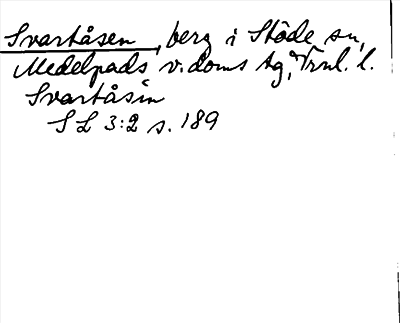 Svartåsen, berg i Stöde sn,
Medelpads v. doms tg, l.
Svartåsin
SL 3:2 s. 189